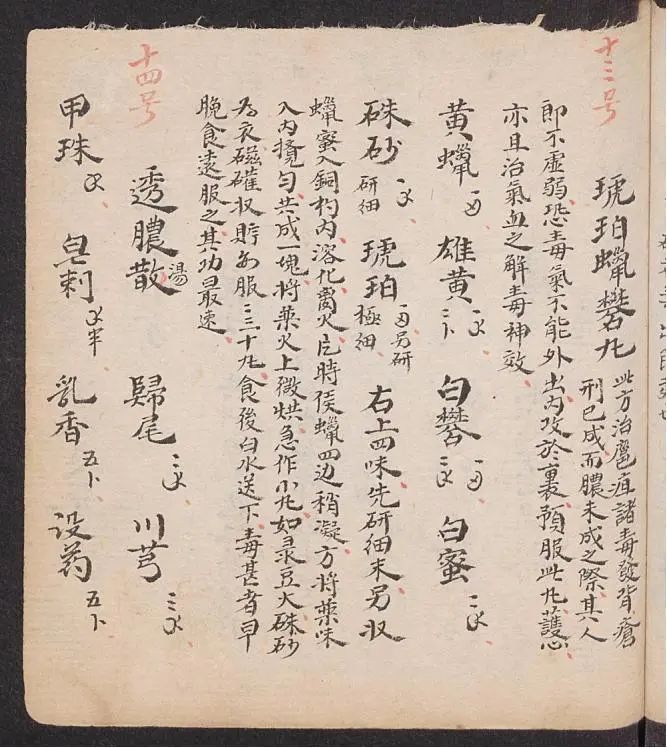 十三号
琥珀蠟礬丸 此方治癰疽諸毒發背瘡
刑已成而膿未成之際其人
即不虛弱恐毒氣不能外出內攻於裏預服此丸護心
亦且治氣血之解毒神效
黃蠟 一両 雄黃 二卜 白礬 一両 白蜜 二
硃砂 研細 琥珀 一両另研極細 右上四味先研細末另收
蠟蜜入銅杓內溶化离火片時侯蠟四边稍凝方將藥味
入內攪勻共成一塊將藥火上微烘急作小丸如彔豆大硃砂
為衣磁礶收貯每服二三十丸食後白水送下毒甚者早
晚食遠服之其功最速
十四号
透膿散 湯 歸尾 川芎
甲珠 皂刺 半 乳香 五卜 沒药 五卜